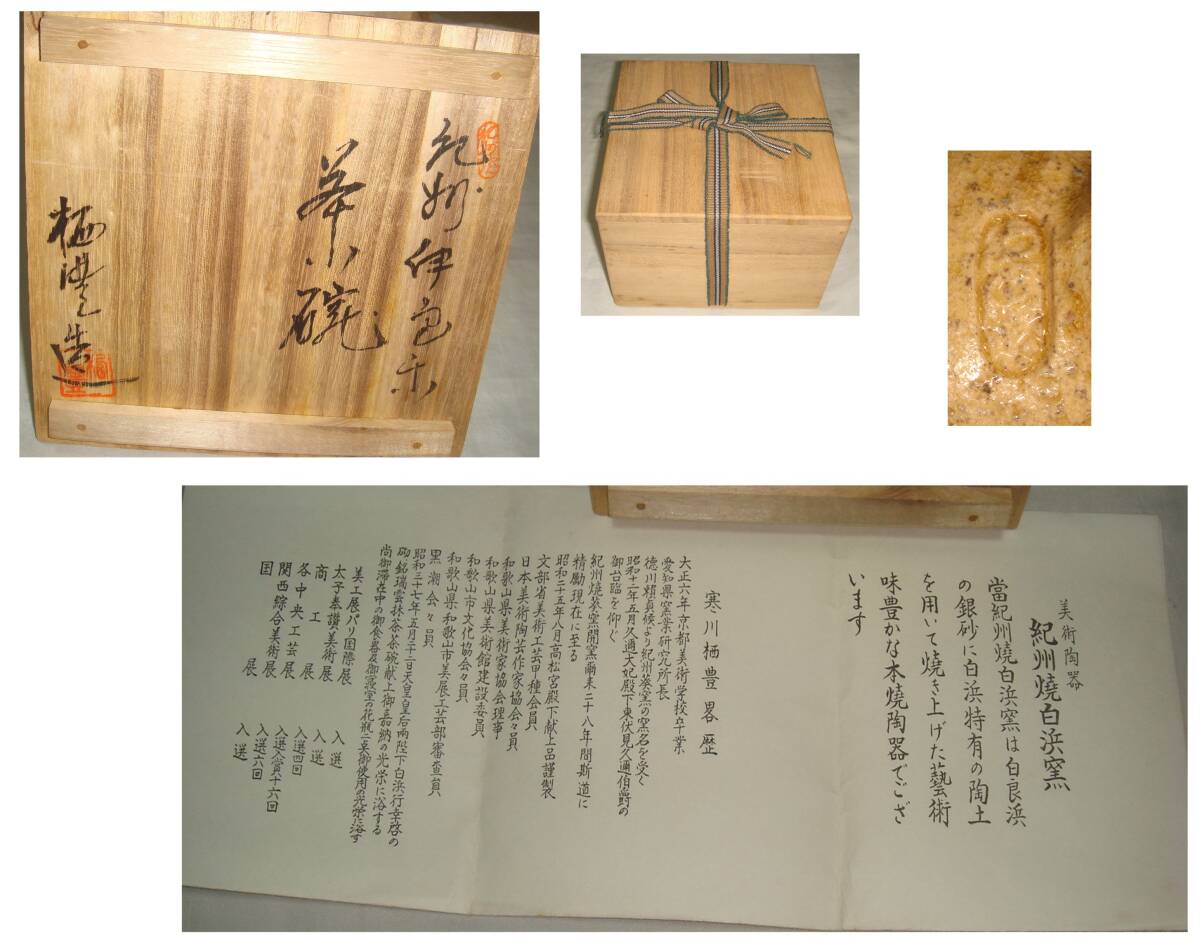 紀州伊良ホ
茶碗
栖豊造
美術陶器
紀州焼白浜窯
當紀州焼白浜窯は白良浜
の銀砂に白浜特有の陶土
を用いて焼き上げた藝術
味豊かな本焼陶器でござ
います
寒川栖豊畧歴
大正六年京都美術学校卒業
愛知県窯業研究所長
徳川頼貞候より紀州葵窯の窯名を受く
昭和十二年五月久邇大妃殿下東伏見久邇伯爵の
御台臨を仰ぐ
紀州焼葵窯開窯爾来二十八年間斯道に
精勵現在に至る
昭和二十五年八月高松宮殿下献上品謹製
文部省美術工芸甲種会員
日本美術陶芸作家協会々員
和歌山県美術家協会理事
和歌山県美術館建設委員
和歌山市文化協会々員
和歌山県和歌山市美展工芸部審査員
黒潮会々員
昭和三十七年五月二十二日天皇皇后両陛下白浜行幸啓の
砌銘瑞雲抹茶茶碗献上御嘉納の光栄に浴する
尚御滞在中の御食器及御寝室の花瓶二点御使用の光栄に浴す
美工展パリ国際展 入選
太子奉讃美術展 入選
商工展 入選
各中央工芸展 入選四回
関西綜合美術展 入選入賞十六回
国展 入選六回